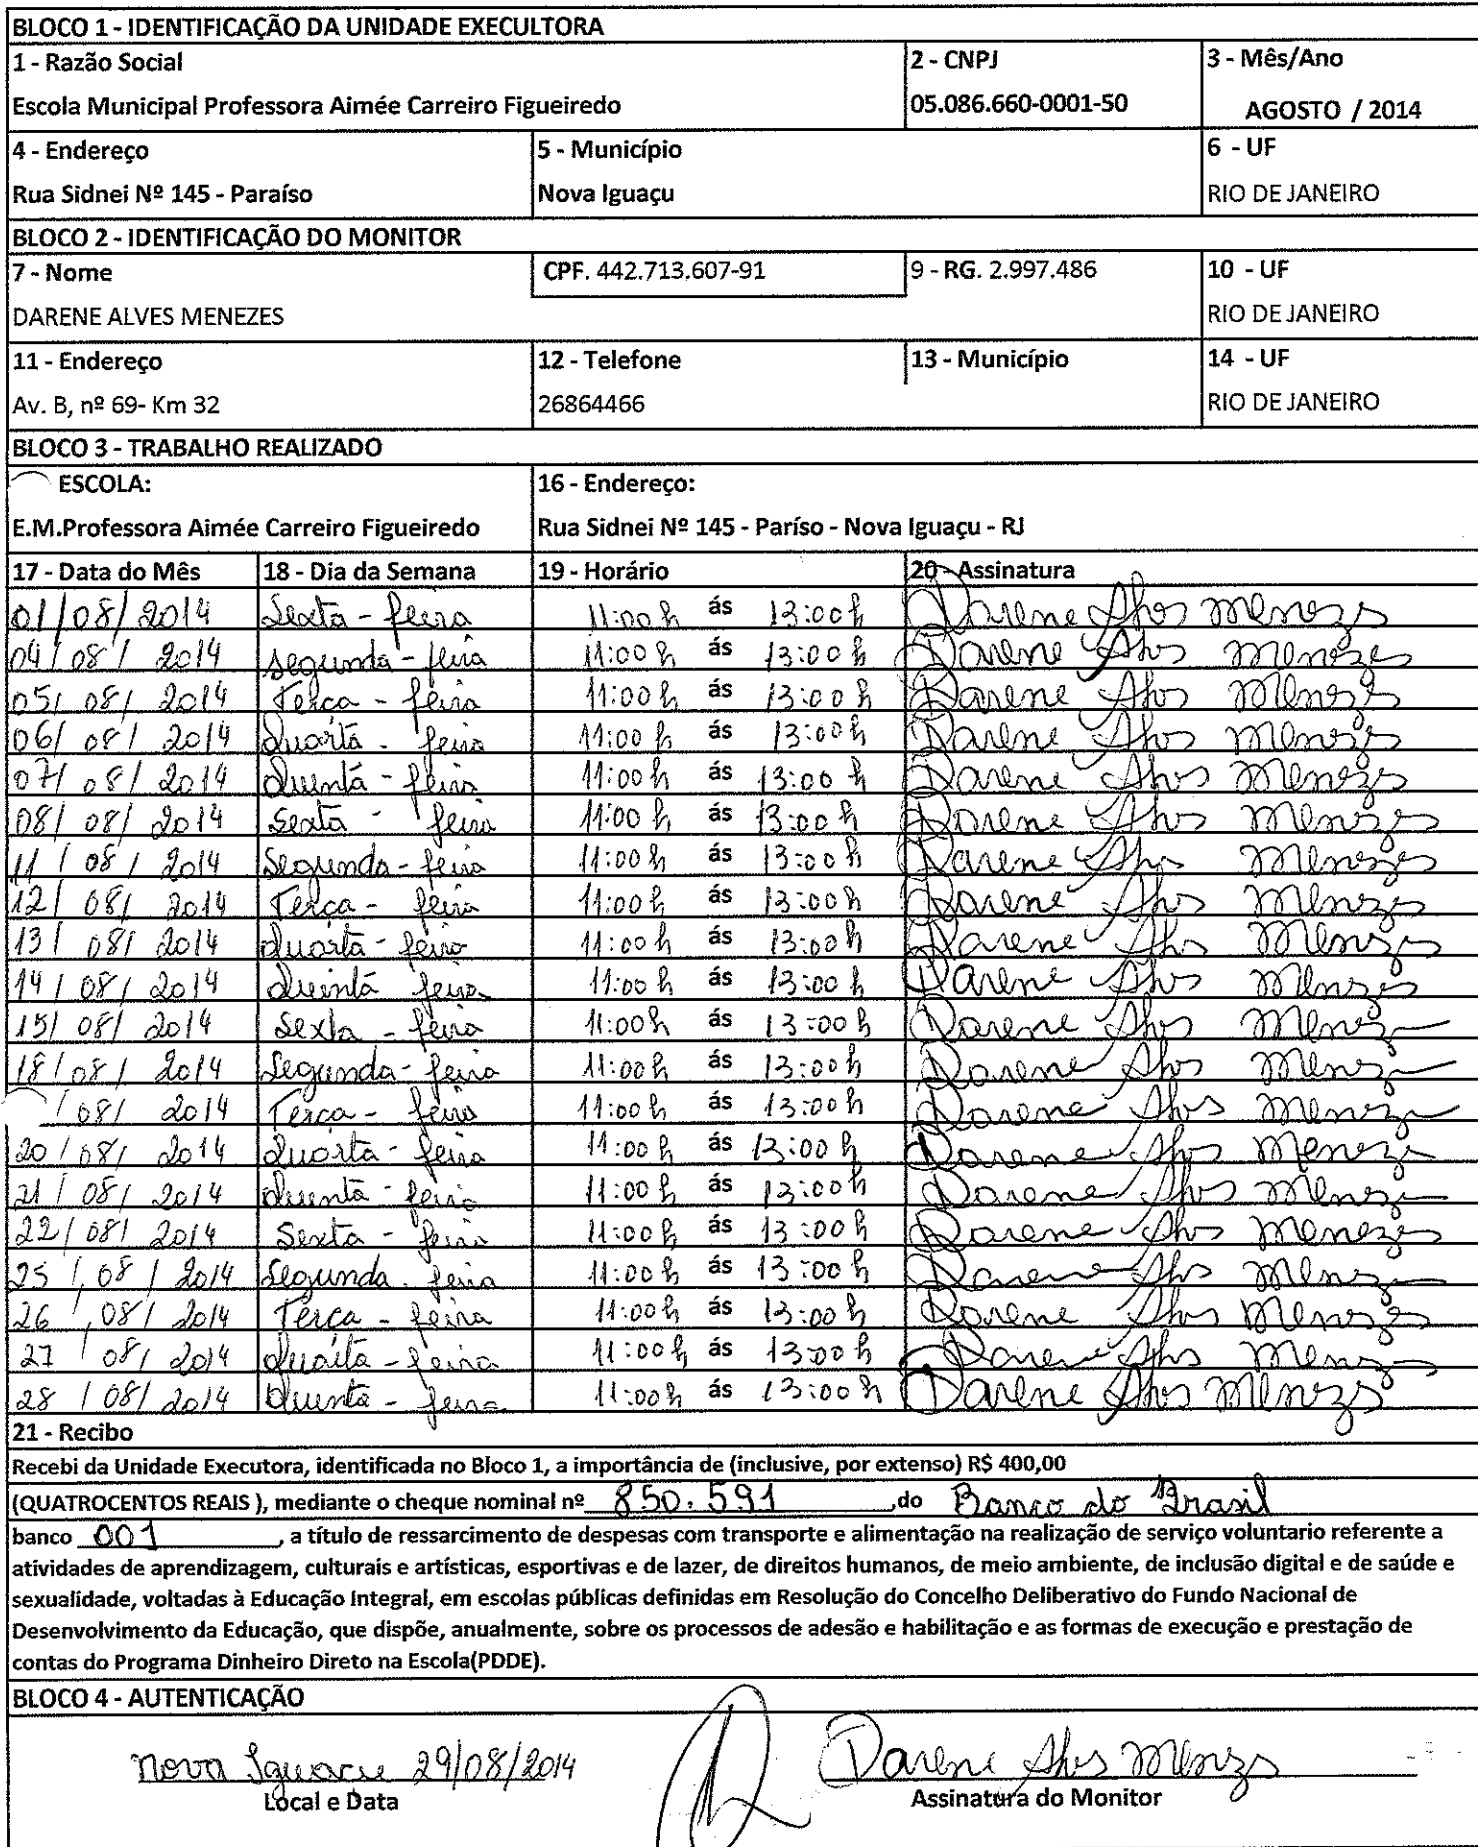 BLOCO 1 - IDENTIFICAÇÃO DA UNIDADE EXECULTORA
1 - Razão Social 2 - CNPJ 3 - Mês/Ano
Escola Municipal Professora Aimée Carreiro Figueiredo 05.086.660-0001-50 AGOSTO / 2014
4 - Endereço 5 - Município 6 - UF
Rua Sidnei Nº 145 - Paraíso Nova Iguaçu RIO DE JANEIRO
BLOCO 2 - IDENTIFICAÇÃO DO MONITOR
7 - Nome CPF. 442.713.607-91 9 - RG. 2.997.486 10 - UF
DARENE ALVES MENEZES RIO DE JANEIRO
11 - Endereço 12 - Telefone 13 - Município 14 - UF
Av. B, nº 69- Km 32 26864466 RIO DE JANEIRO
BLOCO 3 - TRABALHO REALIZADO
ESCOLA: 16 - Endereço:
E.M.Professora Aimée Carreiro Figueiredo Rua Sidnei Nº 145 - Paríso - Nova Iguaçu - RJ
17 - Data do Mês 18 - Dia da Semana 19 - Horário 20 - Assinatura
01/08/2014 Sexta - feira 11:00 h ás 13:00 h Darene Alves Menezes
04/08/2014 segunda - feira 11:00 h ás 13:00 h Darene Alves Menezes
05/08/2014 Terça - feira 11:00 h ás 13:00 h Darene Alves Menezes
06/08/2014 Quarta - feira 11:00 h ás 13:00 h Darene Alves Menezes
07/08/2014 Quinta - feira 11:00 h ás 13:00 h Darene Alves Menezes
08/08/2014 Sexta - feira 11:00 h ás 13:00 h Darene Alves Menezes
11/08/2014 Segunda - feira 11:00 h ás 13:00 h Darene Alves Menezes
12/08/2014 Terça - feira 11:00 h ás 13:00 h Darene Alves Menezes
13/08/2014 Quarta - feira 11:00 h ás 13:00 h Darene Alves Menezes
14/08/2014 Quinta feira 11:00 h ás 13:00 h Darene Alves Menezes
15/08/2014 Sexta - feira 11:00 h ás 13:00 h Darene Alves Menezes
18/08/2014 Segunda - feira 11:00 h ás 13:00 h Darene Alves Menezes
/08/2014 Terça - feira 11:00 h ás 13:00 h Darene Alves Menezes
20/08/2014 Quarta - feira 11:00 h ás 13:00 h Darene Alves Menezes
21/08/2014 Quinta - feira 11:00 h ás 13:00 h Darene Alves Menezes
22/08/2014 Sexta - feira 11:00 h ás 13:00 h Darene Alves Menezes
25/08/2014 Segunda - feira 11:00 h ás 13:00 h Darene Alves Menezes
26/08/2014 Terça - feira 11:00 h ás 13:00 h Darene Alves Menezes
27/08/2014 Quarta - feira 11:00 h ás 13:00 h Darene Alves Menezes
28/08/2014 Quinta - feira 11:00 h ás 13:00 h Darene Alves Menezes
21 - Recibo
Recebi da Unidade Executora, identificada no Bloco 1, a importância de (inclusive, por extenso) R$ 400,00
(QUATROCENTOS REAIS ), mediante o cheque nominal nº 850.591 ,do Banco do Brasil
banco 001 , a título de ressarcimento de despesas com transporte e alimentação na realização de serviço voluntario referente a
atividades de aprendizagem, culturais e artísticas, esportivas e de lazer, de direitos humanos, de meio ambiente, de inclusão digital e de saúde e
sexualidade, voltadas à Educação Integral, em escolas públicas definidas em Resolução do Concelho Deliberativo do Fundo Nacional de
Desenvolvimento da Educação, que dispõe, anualmente, sobre os processos de adesão e habilitação e as formas de execução e prestação de
contas do Programa Dinheiro Direto na Escola(PDDE).
BLOCO 4 - AUTENTICAÇÃO
Nova Iguacu 29/08/2014 Darene Alves Menezes
Local e Data Assinatura do Monitor